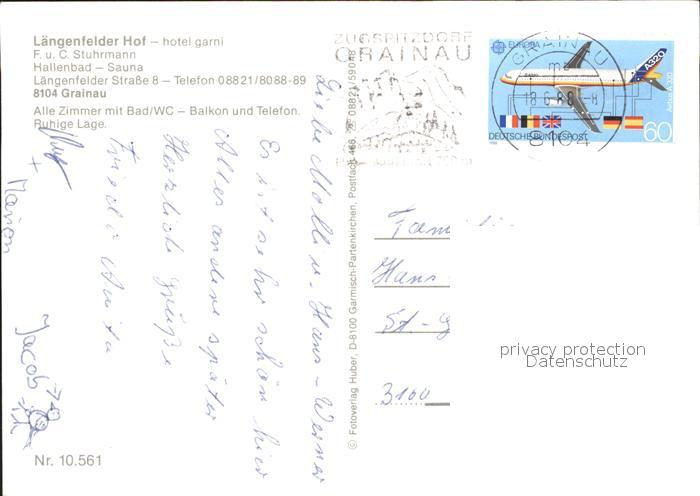 Längenfelder Hof – hotel garni
F. u. C. Stuhrmann
Hallenbad – Sauna
Längenfelder Straße 8 – Telefon 08821/8088-89
8104 Grainau
Alle Zimmer mit Bad/WC – Balkon und Telefon.
Ruhige Lage.
Liebe Molli u. Hans-Werner
Es ist sehr schön hier
Alles andere später
Herzliche Grüße
Friedi Anita
+ Marion
Jacob
Nr. 10.561
© Fotoverlag Huber, D-8100 Garmisch-Partenkirchen, Postfach 468 ☎ 08821/59048
ZUGSPITZDORF
GRAINAU
GRAINAU
8104
EUROPA
A320
Airbus A320
DEUTSCHE BUNDESPOST
60
1988
Fami
Hans-
St-G
3100
privacy protection
Datenschutz